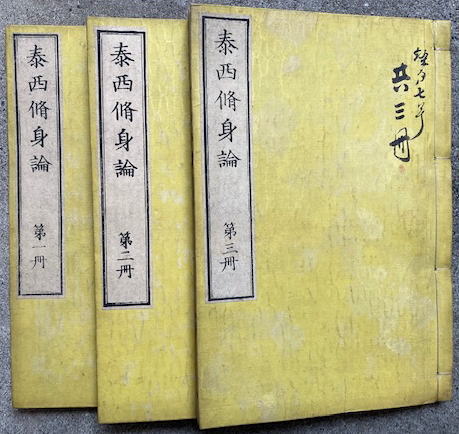 泰西脩身論
第一冊
泰西脩身論
第二冊
泰西脩身論
第三冊
共三冊